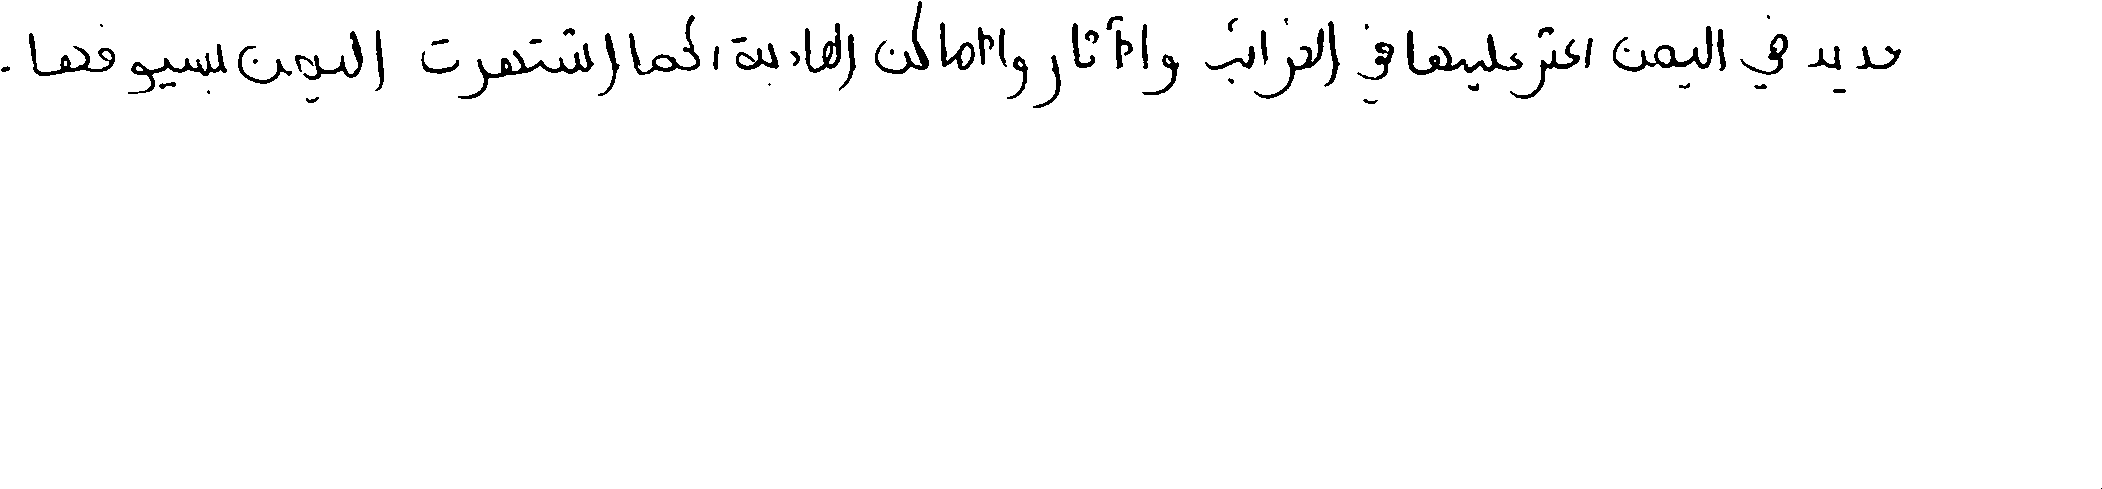 حديد في اليمن اعثر عليها في الخرائب والآثار والأماكن العادية، كما اشتهرت اليمن بسيوفها.